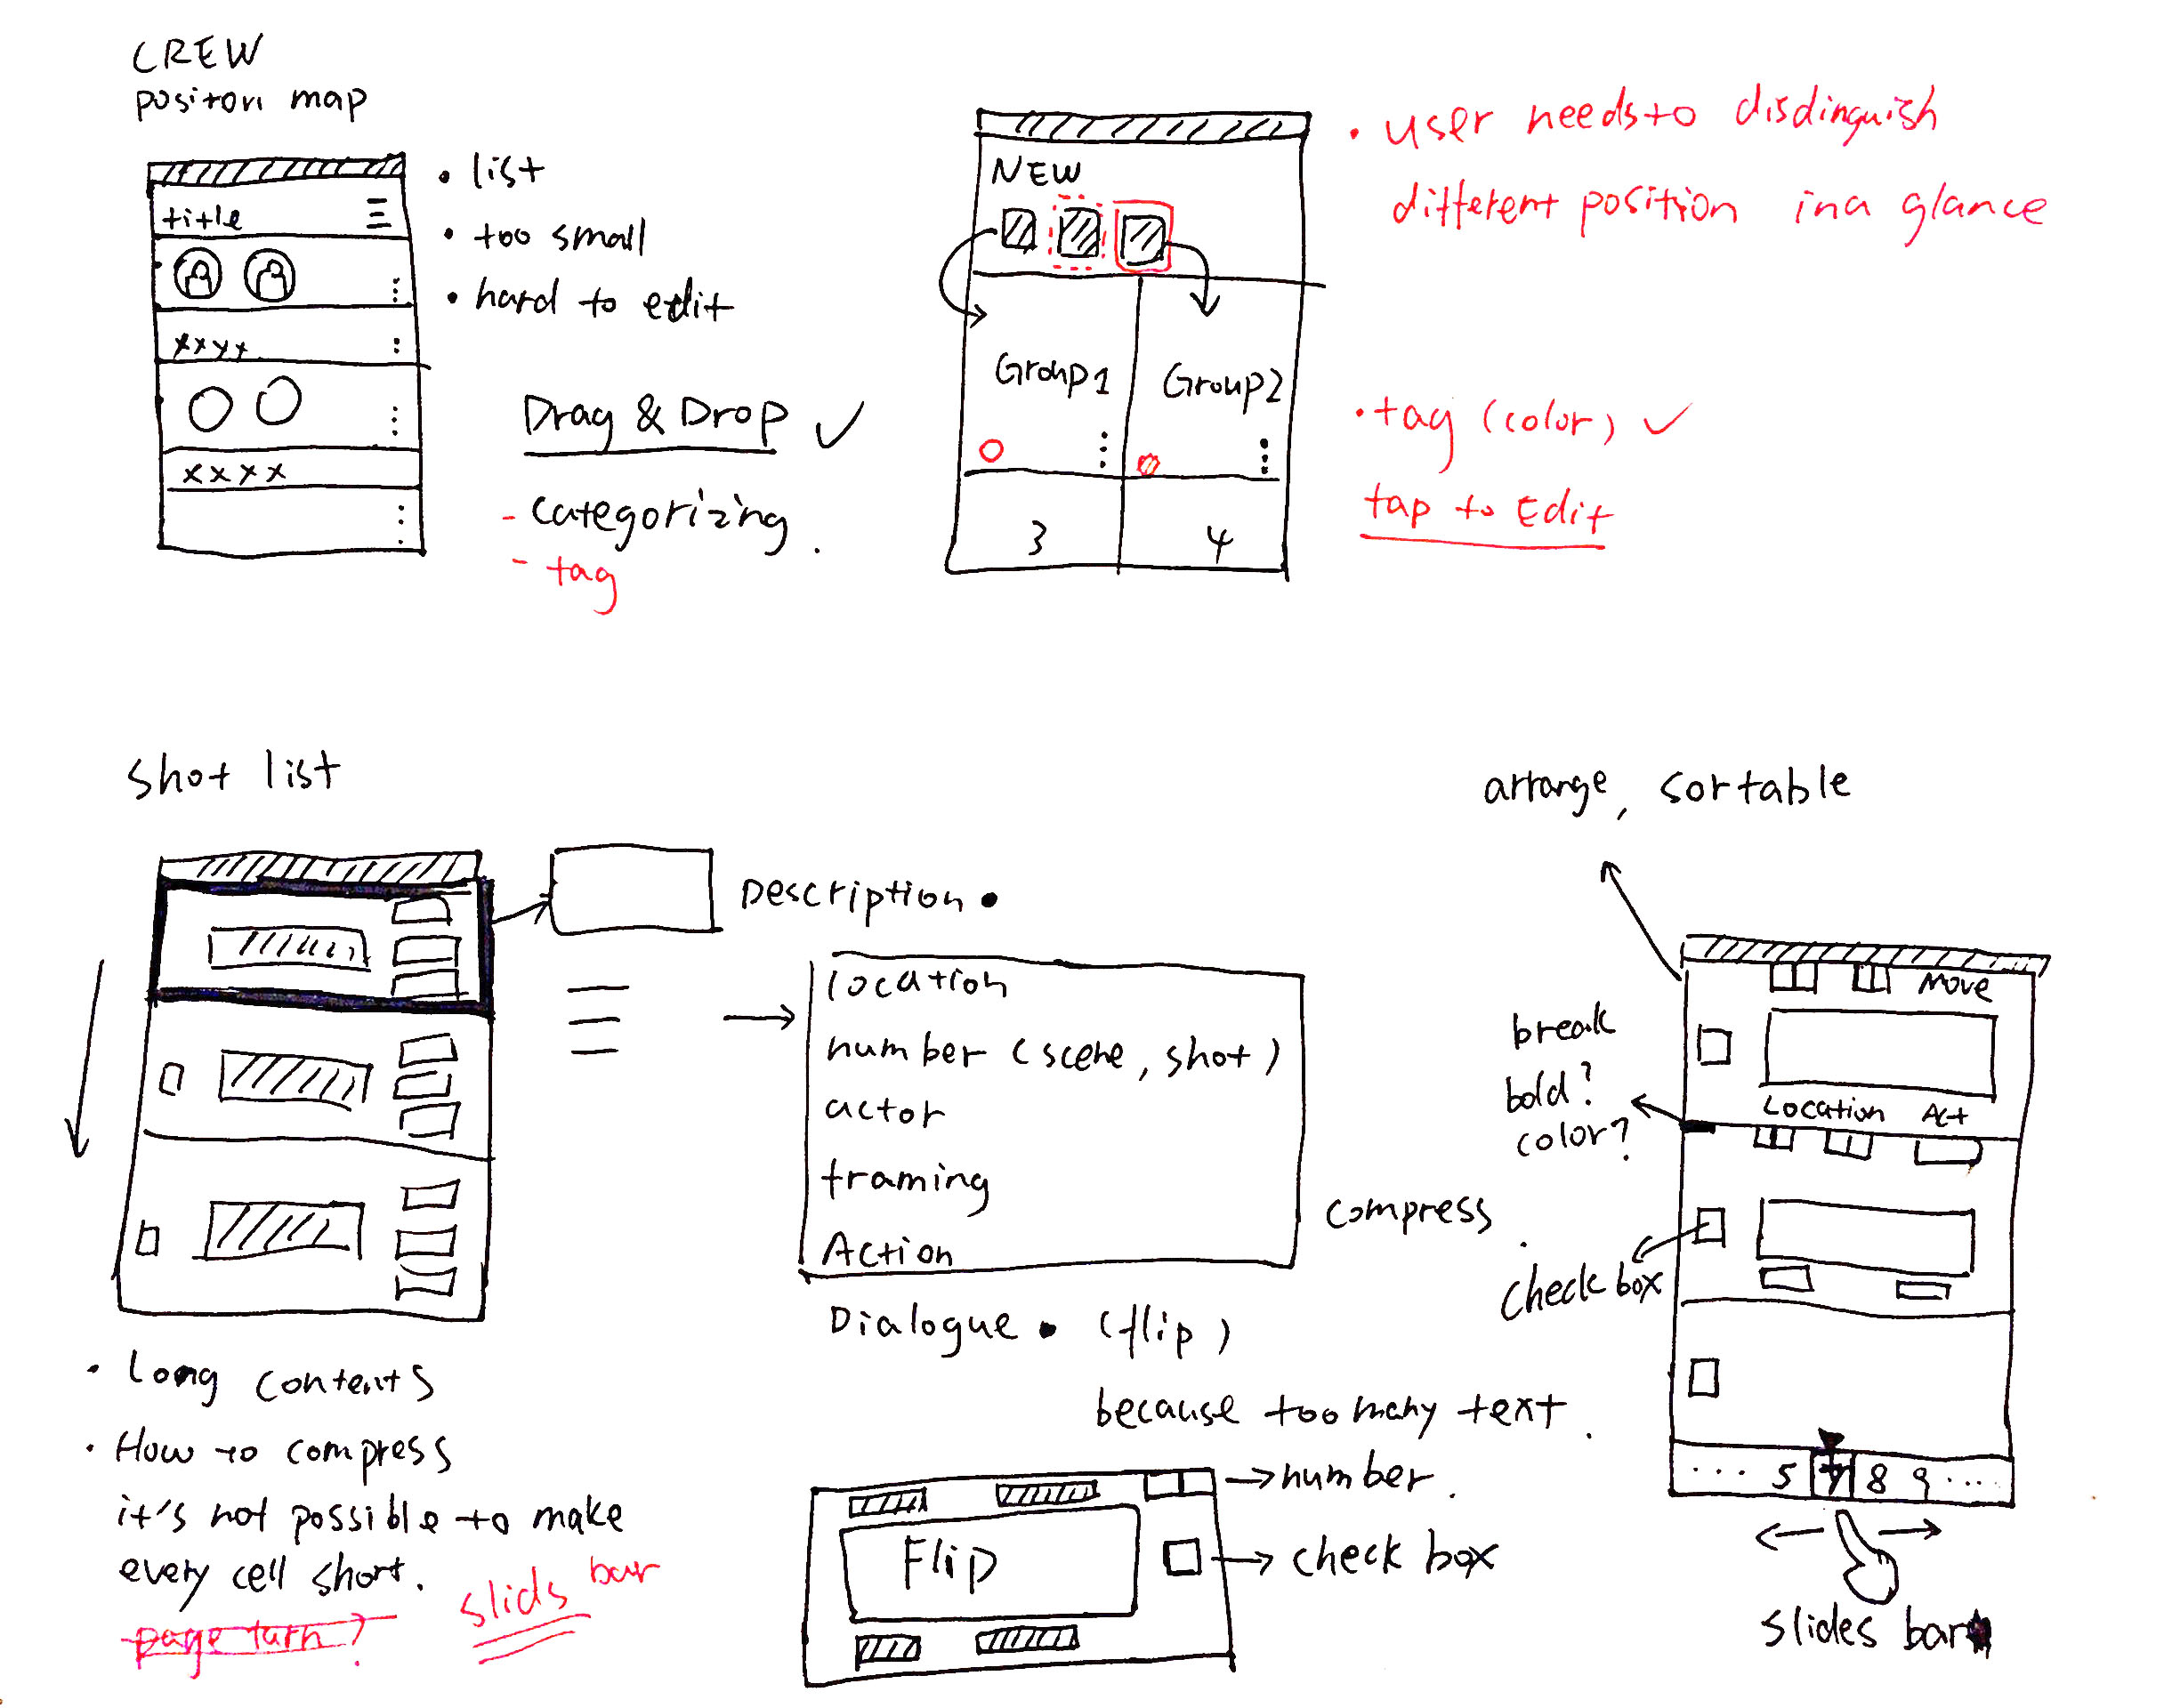 CREW
position map
title
xxyx
xxyx
• list
• too small
• hard to edit
Drag & Drop ✓
- categorizing.
- tag
NEW
Group1
Group2
3
4
• user needs to disdinguish
different position in a glance
• tag (color) ✓
tap to Edit
Shot list
Description •
location
number (scene, shot)
actor
framing
Action
Dialogue • (flip)
because too many text.
compress.
• Long contents
• How to compress
it's not possible to make
every cell short.
page turn?
slids bar
Flip
number.
check box
arrange, sortable
Move
Location Act
break
bold?
color?
check box
.... 5 7 8 9 ....
slides bar